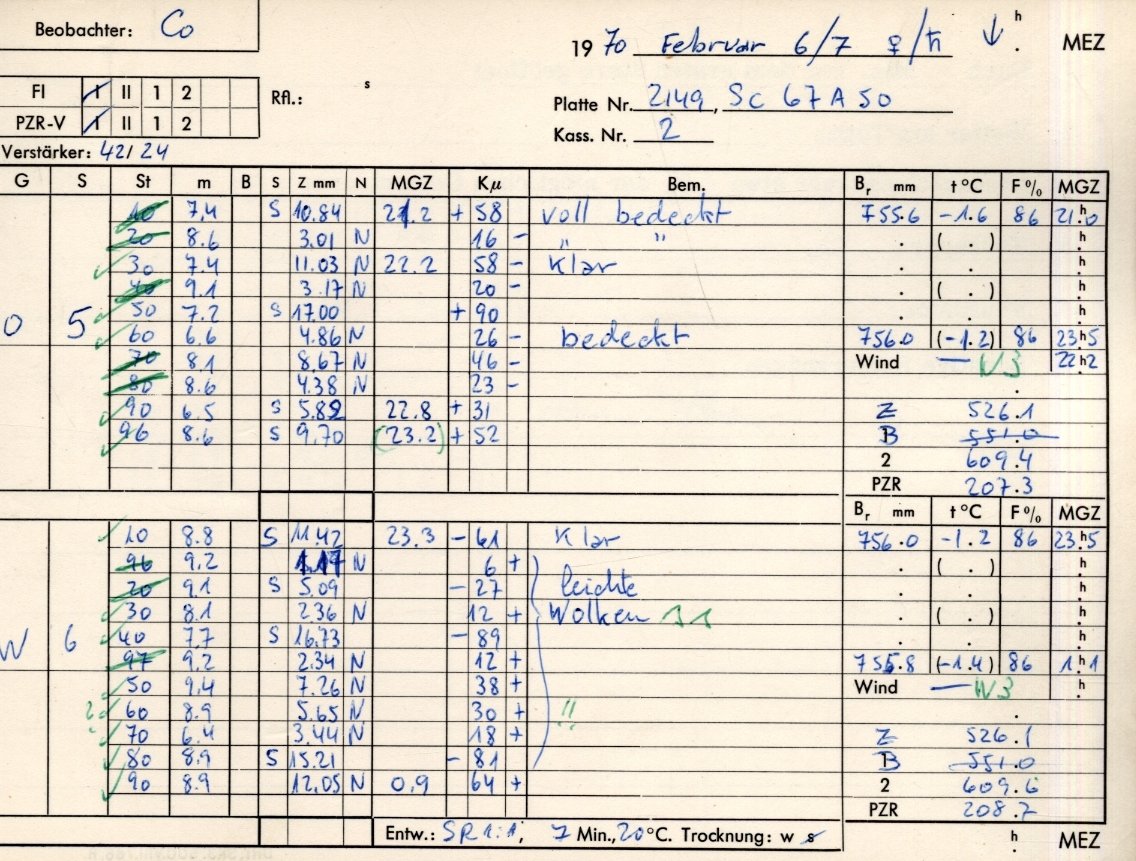 Beobachter: Co
h
19 70 Februar 6/7 ♀/♄ ↓ . MEZ
FI I II 1 2
Rfl.: s
Platte Nr. 2149, Sc 67 A 50
PZR-V I II 1 2
Kass. Nr. 2
Verstärker: 42/24
G S St m B S Z mm N MGZ Kμ Bem. Br mm t °C F % MGZ
10 7.4 S 10.84 21.2 + 58 voll bedeckt 755.6 -1.6 86 21h0
20 8.6 3.01 N 16 - " " . ( . ) h
30 7.4 11.03 N 22.2 58 - Klar . . h
40 9.1 3.17 N 20 - . ( . ) h
50 7.2 S 17.00 + 90 . . h
O 5
60 6.6 4.86 N 26 - bedeckt 756.0 (-1.2) 86 23h5
70 8.1 8.67 N 46 - Wind — W3 22h2
80 8.6 4.38 N 23 - .
90 6.5 S 5.82 22.8 + 31 Z 526.1
96 8.6 S 9.70 (23.2) + 52 B 551.0
2 609.4
PZR 207.3
Br mm t °C F % MGZ
10 8.8 S 11.42 23.3 - 61 Klar 756.0 -1.2 86 23h5
96 9.2 1.17 N 6 + . ( . ) h
20 9.1 S 5.09 - 27 leichte . . h
30 8.1 2.36 N 12 + Wolken . ( . ) h
W 6
40 7.7 S 16.73 - 89 . . h
97 9.2 2.34 N 12 + 755.8 (-1.4) 86 1h1
50 9.4 7.26 N 38 + Wind — W3 h
60 8.9 5.65 N 30 + !! .
70 6.4 3.44 N 18 + Z 526.1
80 8.9 S 15.21 - 81 B 551.0
90 8.9 12.05 N 0.9 64 + 2 609.6
PZR 208.7
Entw.: SR 1:1, 7 Min., 20 °C. Trocknung: w s h . MEZ